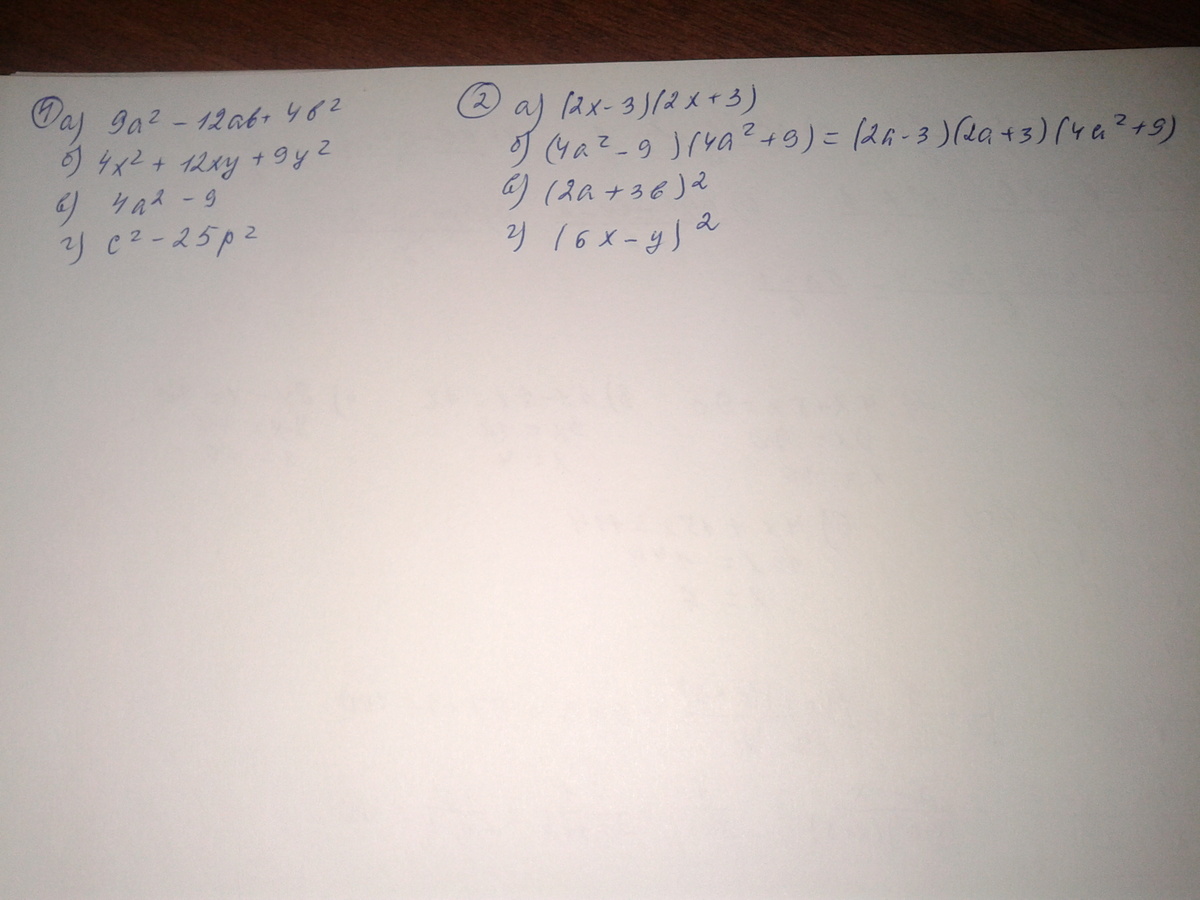 ① а) 9а² - 12ав + 4в²
б) 4x² + 12xy + 9y²
в) 4а² - 9
г) с² - 25р²
② а) (2x - 3)(2x + 3)
б) (4а² - 9)(4а² + 9) = (2а - 3)(2а + 3)(4а² + 9)
в) (2а + 3в)²
г) (6x - y)²